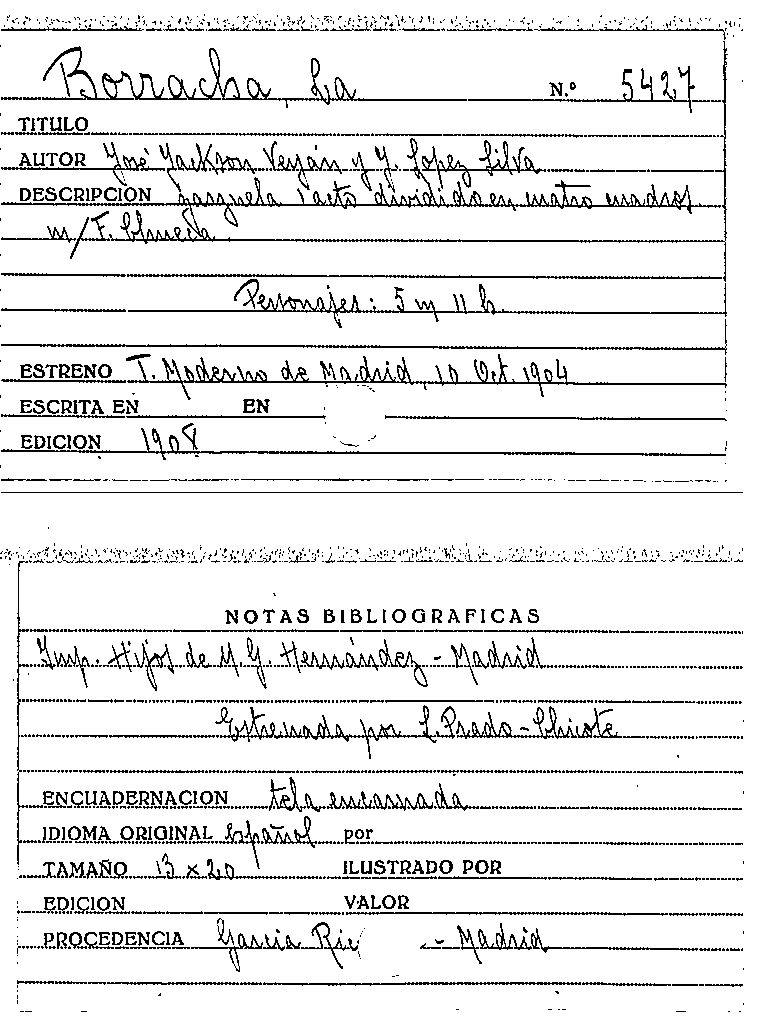 Borracha, La N.º 5427
TITULO
AUTOR José Jackson Veyán y J. Lopez Silva
DESCRIPCION Zarzuela 1 acto dividido en cuatro cuadros
m/F. Chueca
Personajes: 5 m 11 h.
ESTRENO T. Moderno de Madrid, 10 Oct. 1904
ESCRITA EN EN
EDICION 1908
NOTAS BIBLIOGRAFICAS
Imp. Hijos de M. G. Hernández - Madrid
Estrenada por L. Prado - Chicote
ENCUADERNACION tela encarnada
IDIOMA ORIGINAL Español por
TAMAÑO 13 x 20 ILUSTRADO POR
EDICION VALOR
PROCEDENCIA Garcia Ric - Madrid